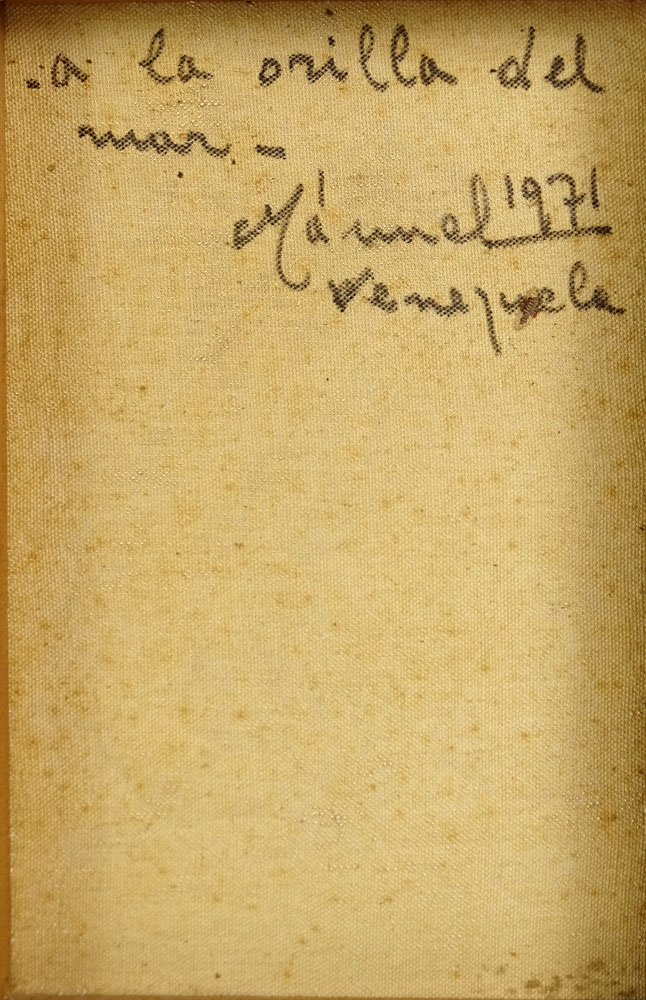 .a la orilla del
mar -
Mánuel 1971
Venezuela